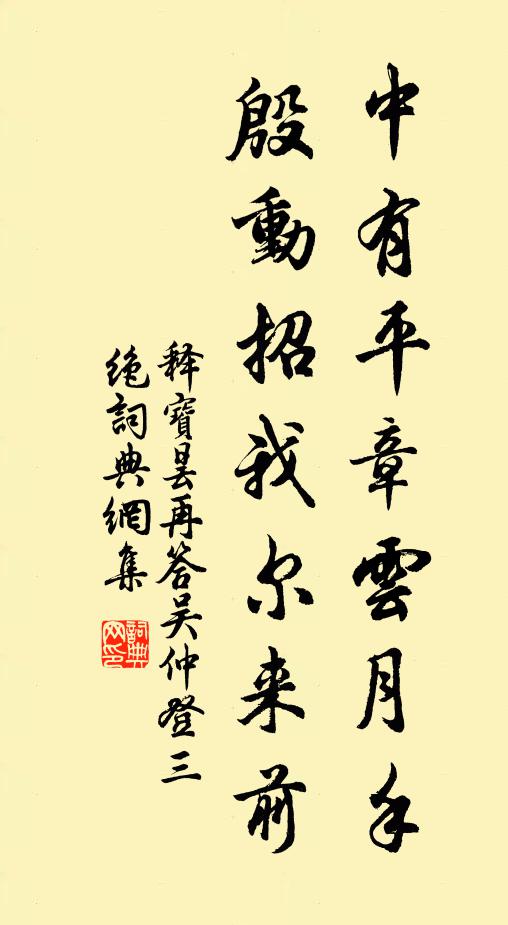 中有平章雲月手
殷動招我尔来前
释寶昙再答吴仲登三
绝詞典網集
詞典
网印